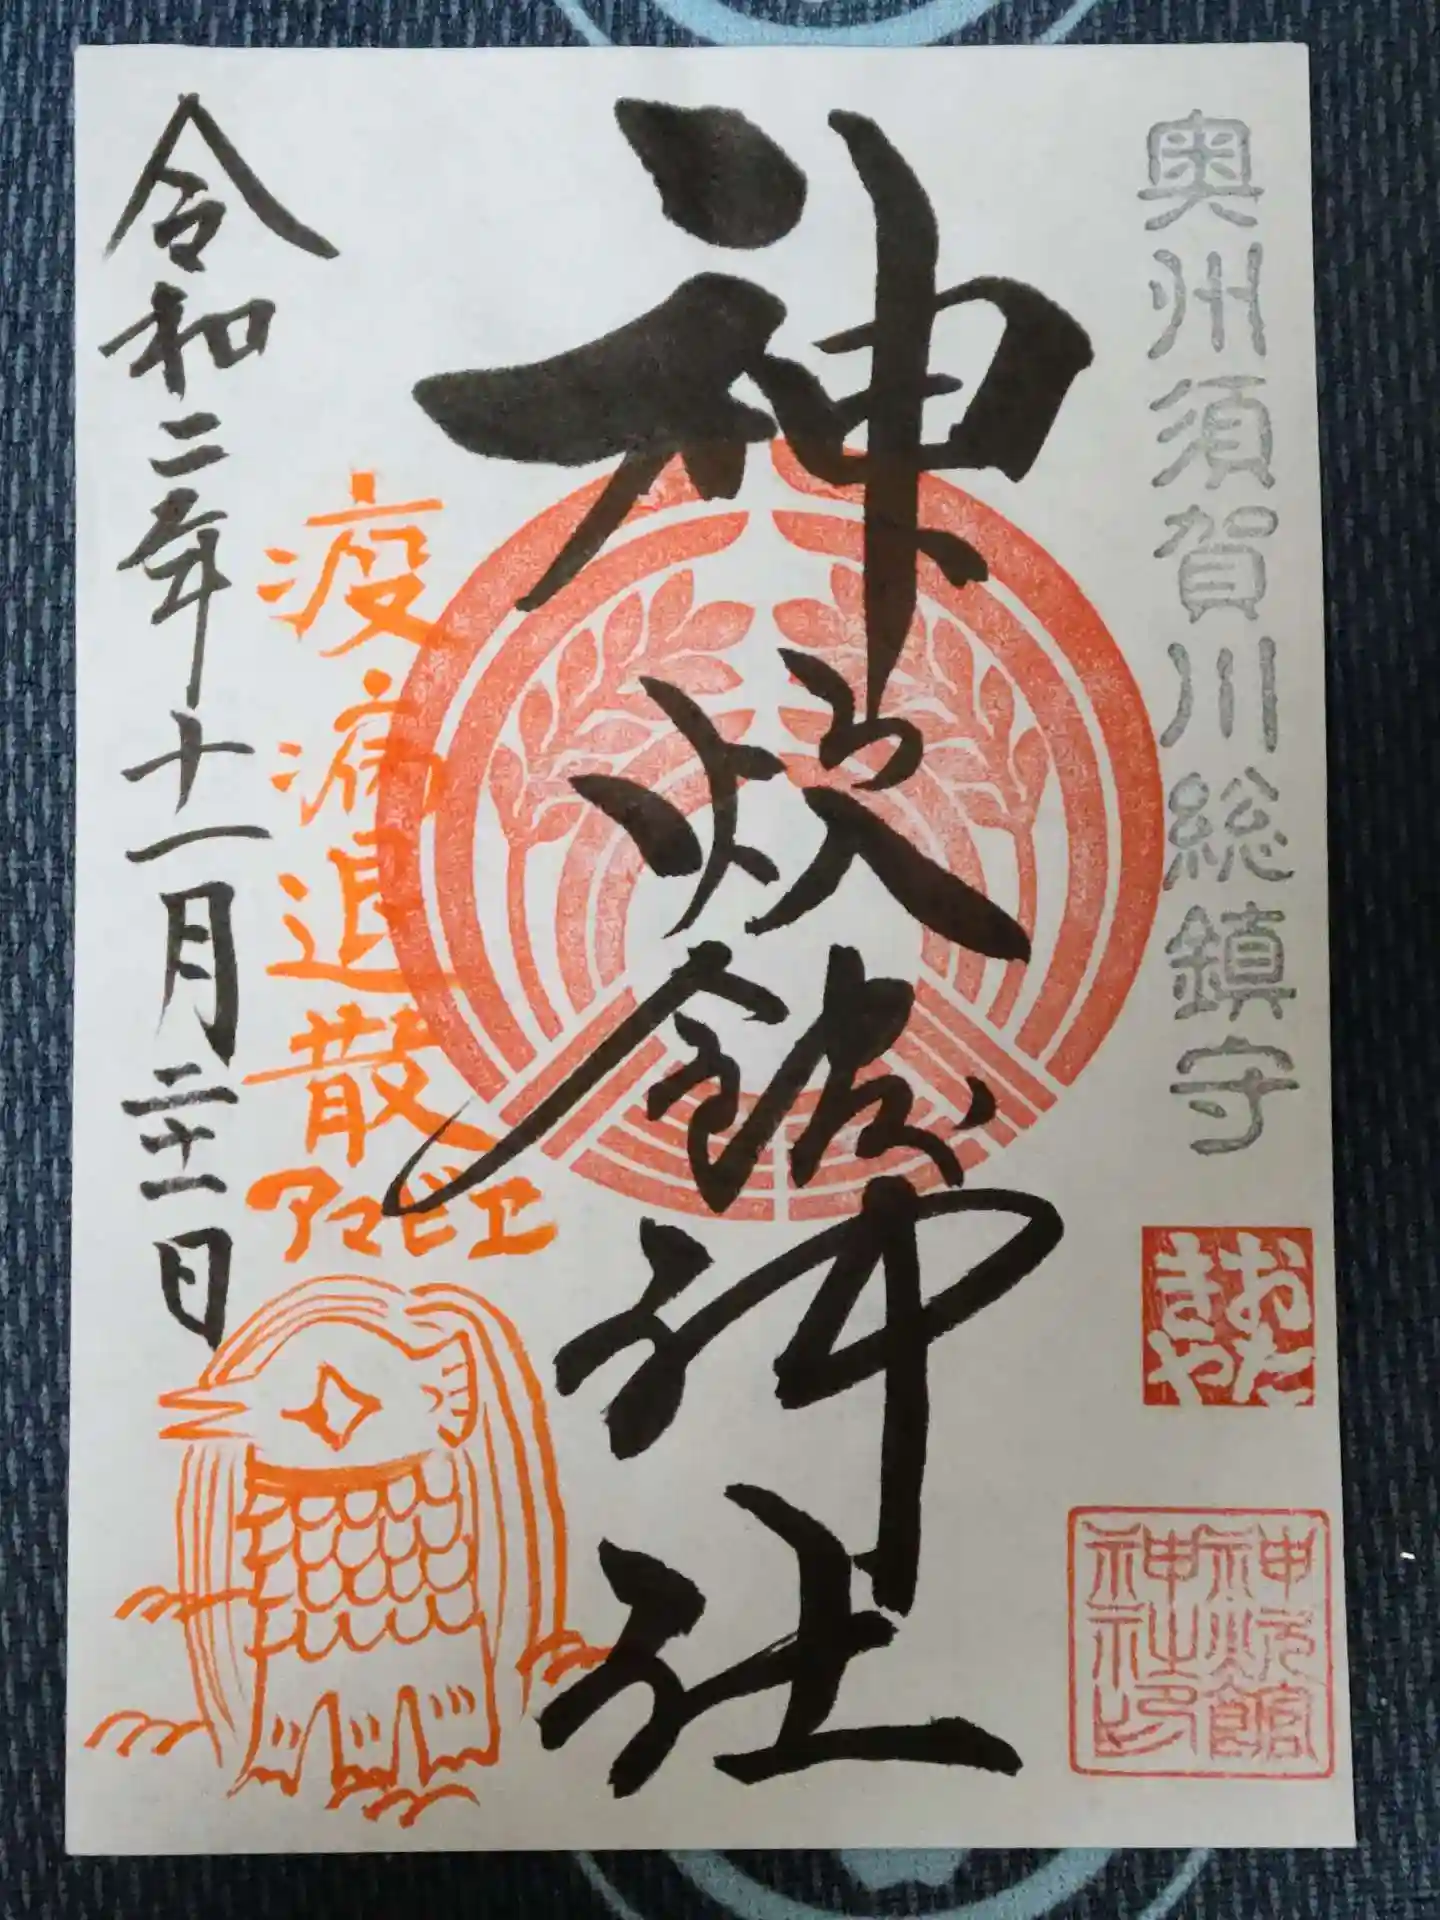 奥州須賀川総鎮守
おたきや
神炊館神社印
神炊館神社
疫病退散
アマビエ
令和二年十一月二十一日